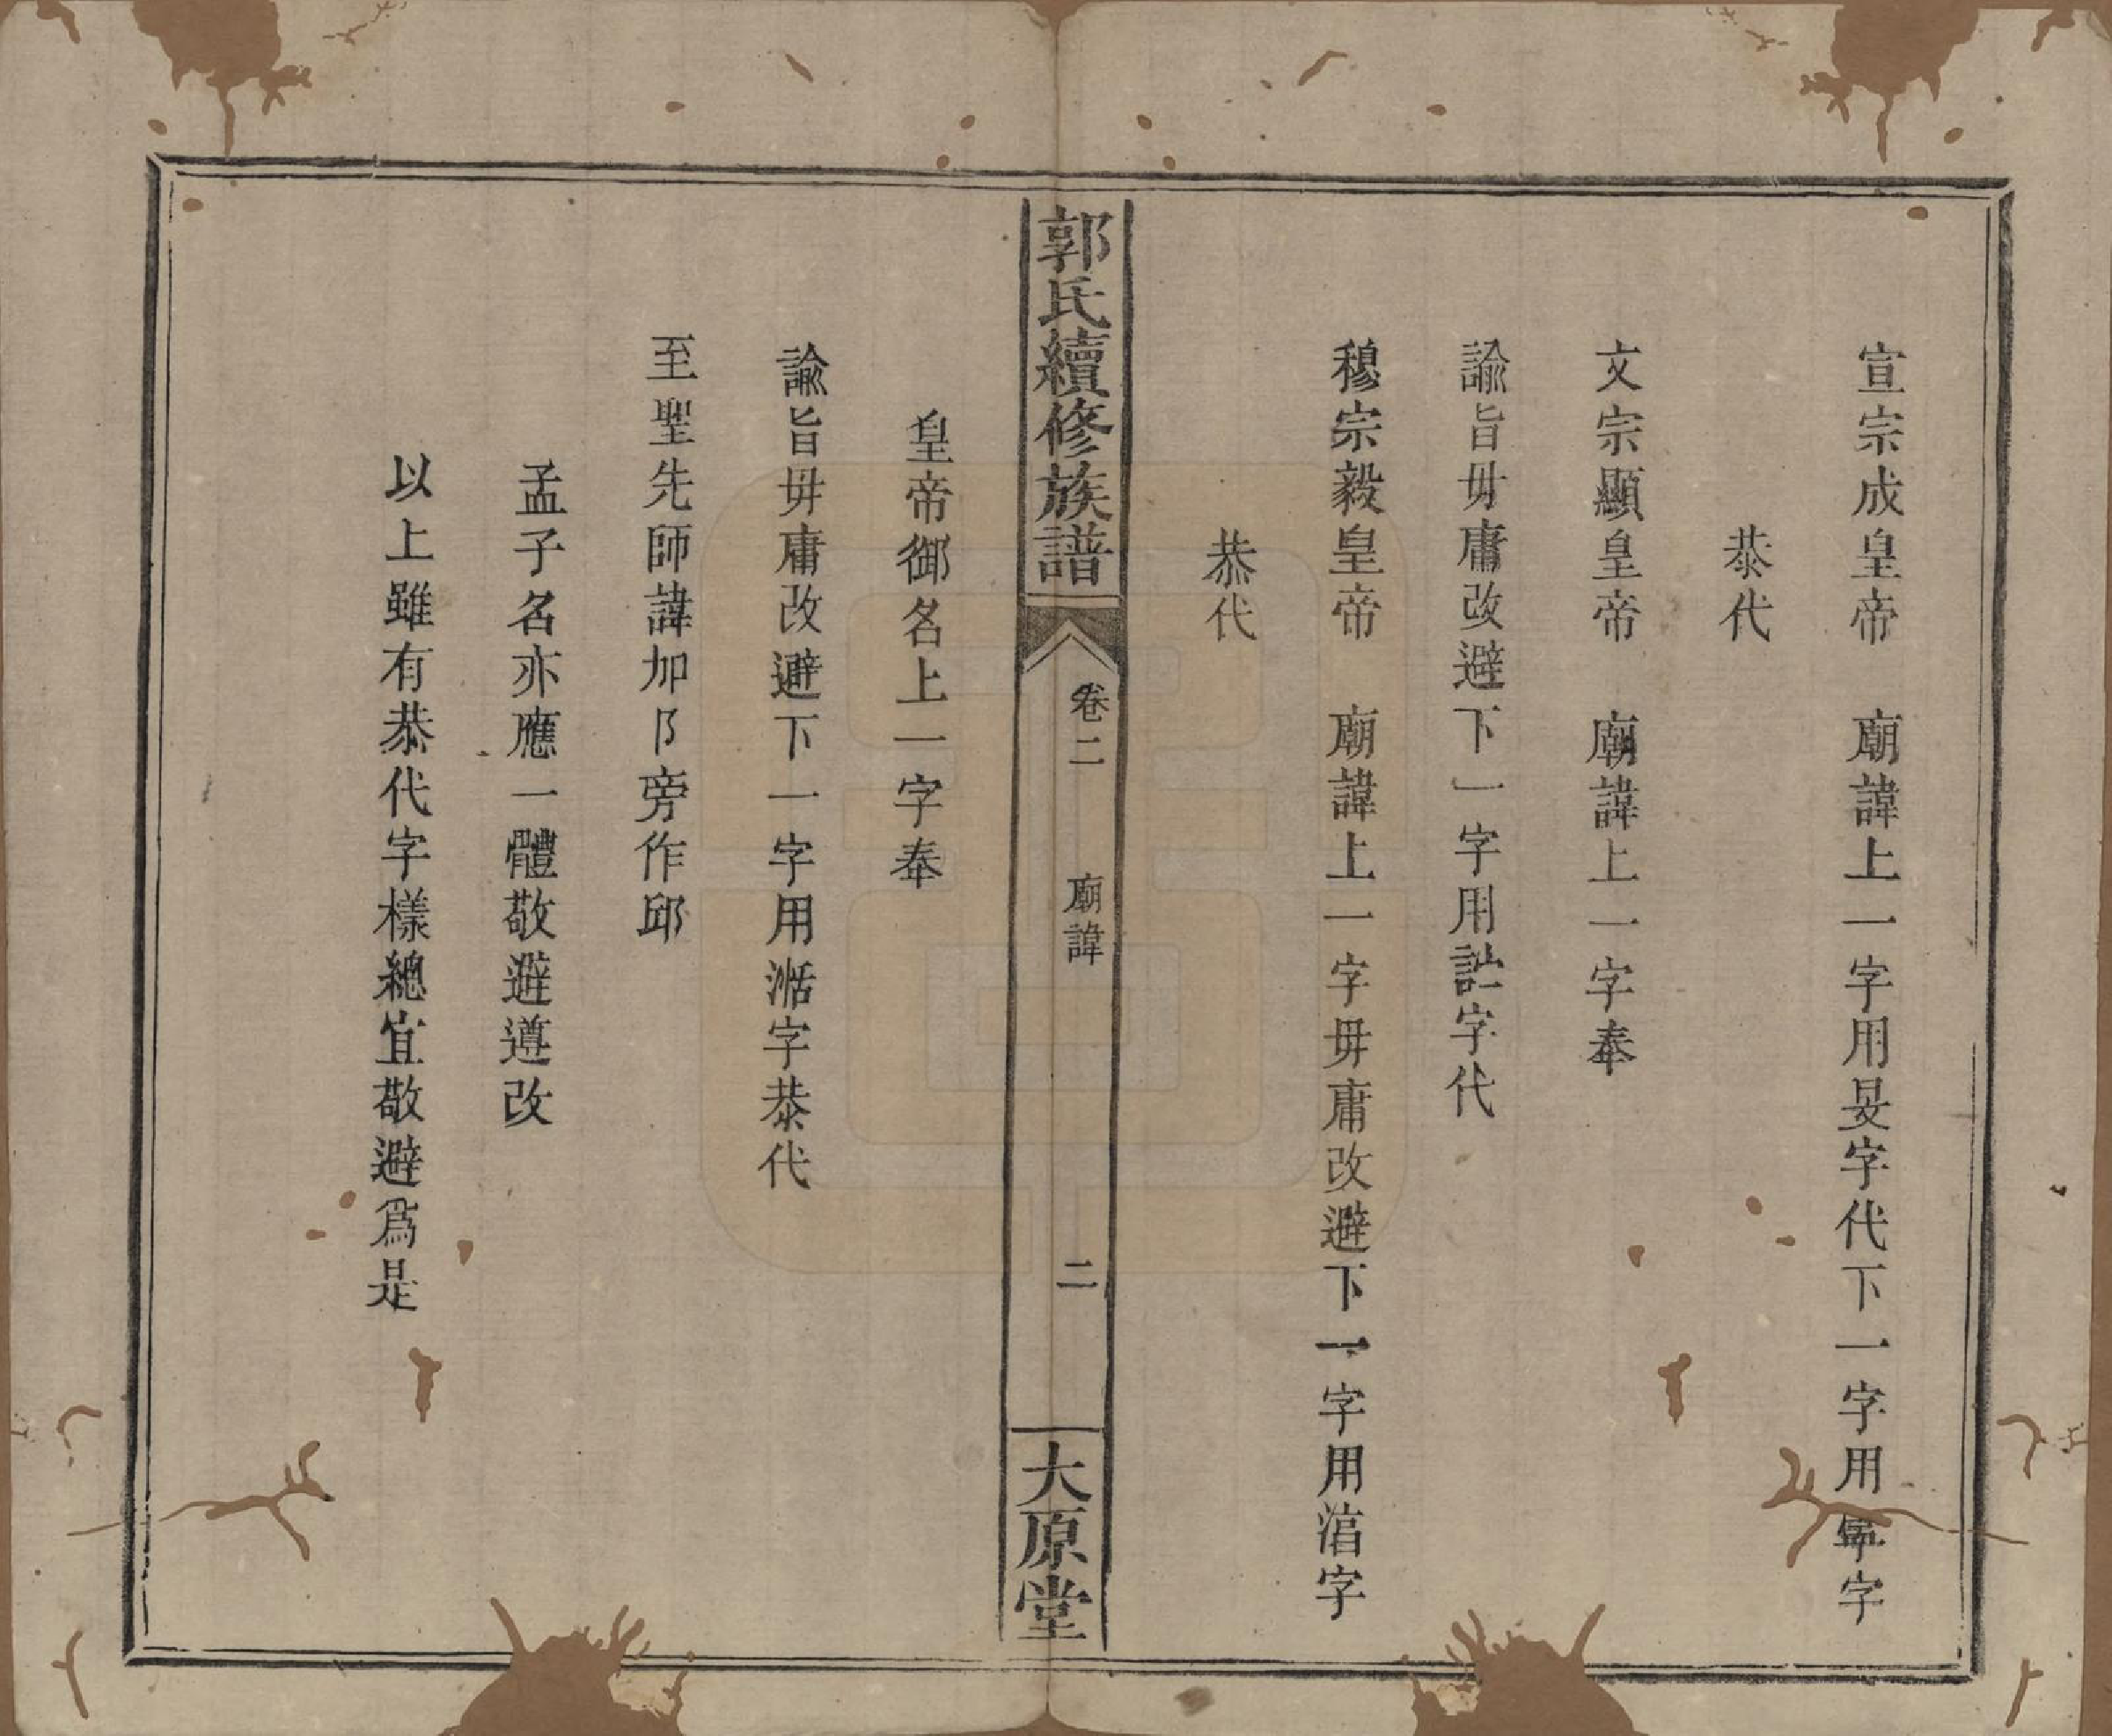 宣宗成皇帝　廟諱上一字用旻字代下一字用字
恭代
文宗顯皇帝　廟諱上一字奉
諭旨毋庸改避下一字用字代
穆宗毅皇帝　廟諱上一字毋庸改避下一字用湻字
恭代
郭氏續修族譜　卷二　廟諱　二　大原堂
皇帝御名上一字奉
諭旨毋庸改避下一字用湉字恭代
至聖先師諱加阝旁作邱
孟子名亦應一體敬避遵改
以上雖有恭代字樣總宜敬避爲是